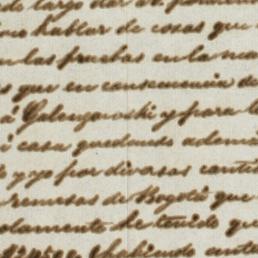 largo dar
hablar de cosas que
las pruebas en la
que en consecuencia de
á Galezowski y para
casa quedando además
y yo por diversas
remesas de Bogotá que
solamente he tenido que
habiendo